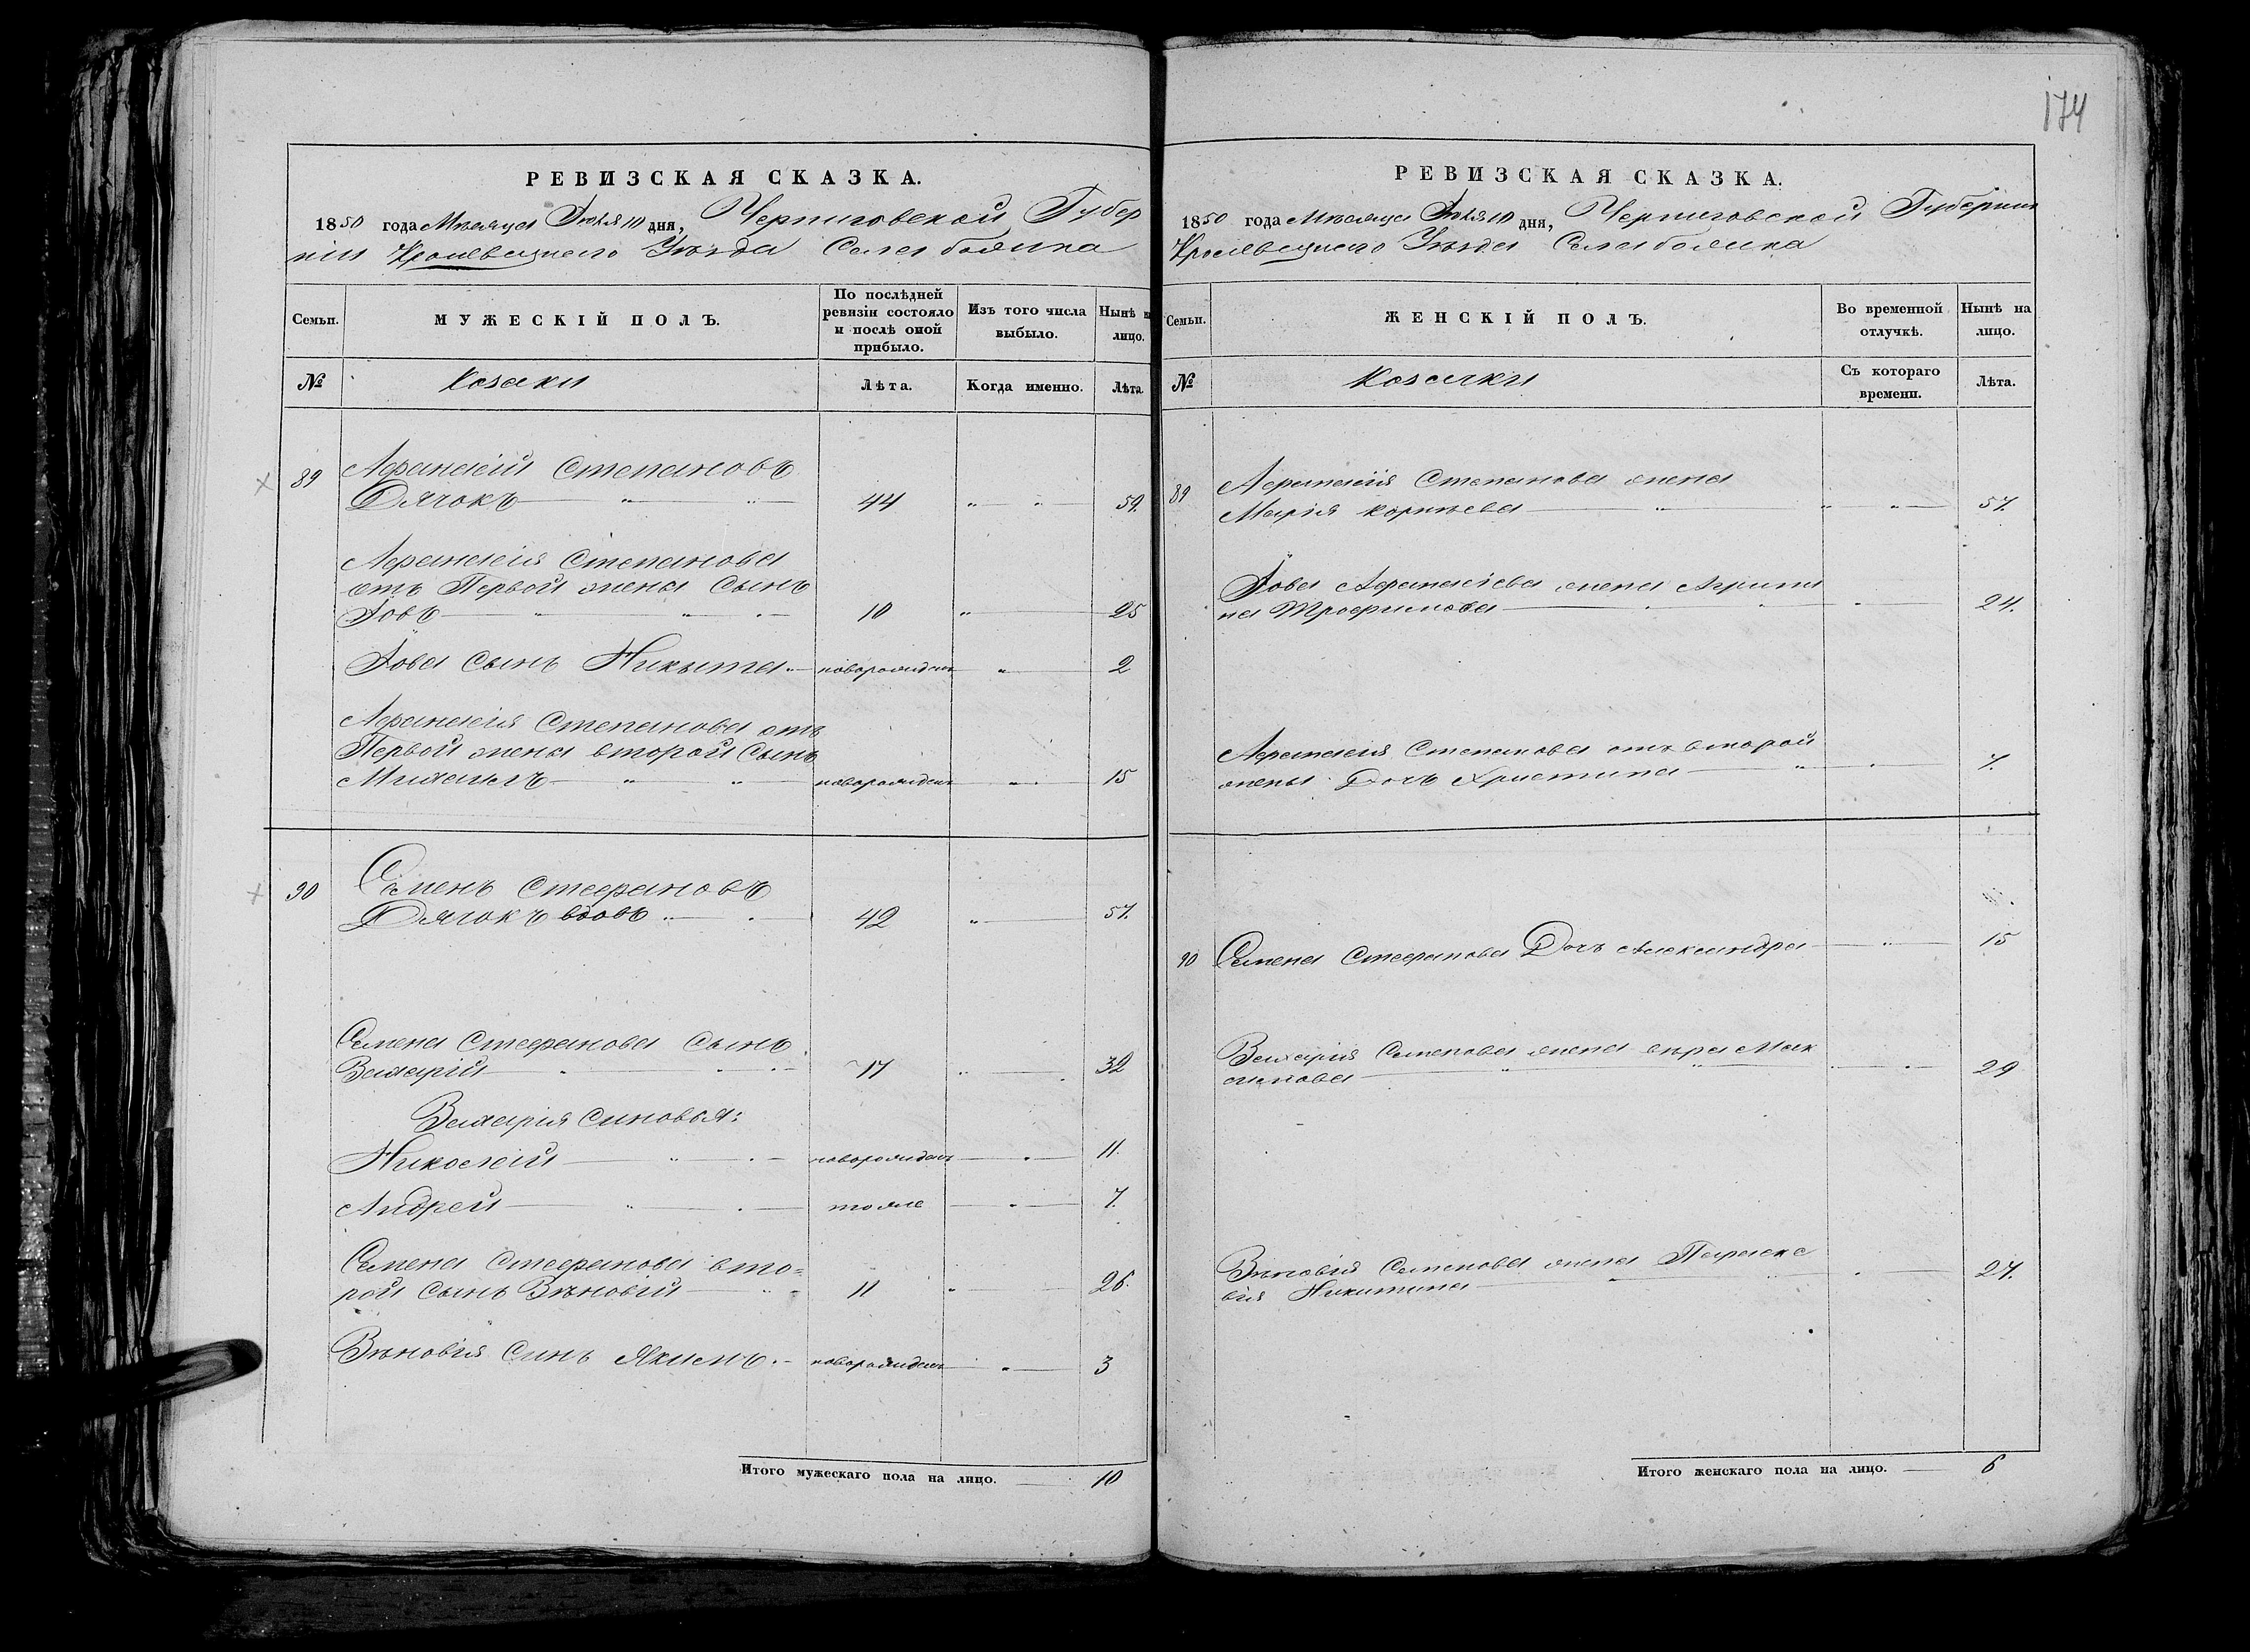 174
РЕВИЗСКАЯ СКАЗКА.
1850 года Мѣсяца Іюля 10 дня, Черниговской Губер
ніи Кролевецкаго Уѣзда Села
Семьи.
МУЖЕСКІЙ ПОЛЪ.
По послѣдней ревизіи состояло и послѣ оной прибыло.
Изъ того числа выбыло.
Нынѣ на лицо.
№
Козаки
Лѣта.
Когда именно.
Лѣта
89 Афанасій Степановъ
Дячокъ 44 59.
Афанасія Степанова
отъ Первой жены Сынъ
Іовъ 10 25
Іова Сынъ Никыта новорожденъ 2
Афанасія Степанова отъ
Первой жены второй Сынъ
Михаилъ новорожденъ 15
90 Семенъ Стефановъ
Дячокъ вдовъ 42 57.
Семена Стефанова Сынъ
Захарій 17 32
Захарія Синовья:
Николай новорожденъ 11.
Андрей тоже 7.
Семена Стефанова вто=
рой Сынъ Зѣновій 11 26.
Зѣновія Синъ Якимъ новорожденъ 3
Итого мужескаго пола на лицо. 10
РЕВИЗСКАЯ СКАЗКА.
1850 года Мѣсяца Іюля 10 дня, Черниговской Губерніи
Кролевецкаго Уѣзда Села
Семьи.
ЖЕНСКІЙ ПОЛЪ.
Во временной отлучкѣ.
Нынѣ на лицо.
№
Козачки
Съ котораго времени.
Лѣта.
89 Афанасія Степанова жена
Марія Корнѣева 57.
Іова Афанасіева жена Агрипи
на Трофимова 24.
Афанасія Степанова отъ второй
жены Дочъ Христина 7.
90 Семена Стефанова Дочъ Александра 15
Захарія Семенова жена вѣра Мак
симова 29
Зѣновія Семенова жена Параске
вія Никитина 27.
Итого женскаго пола на лицо. 6